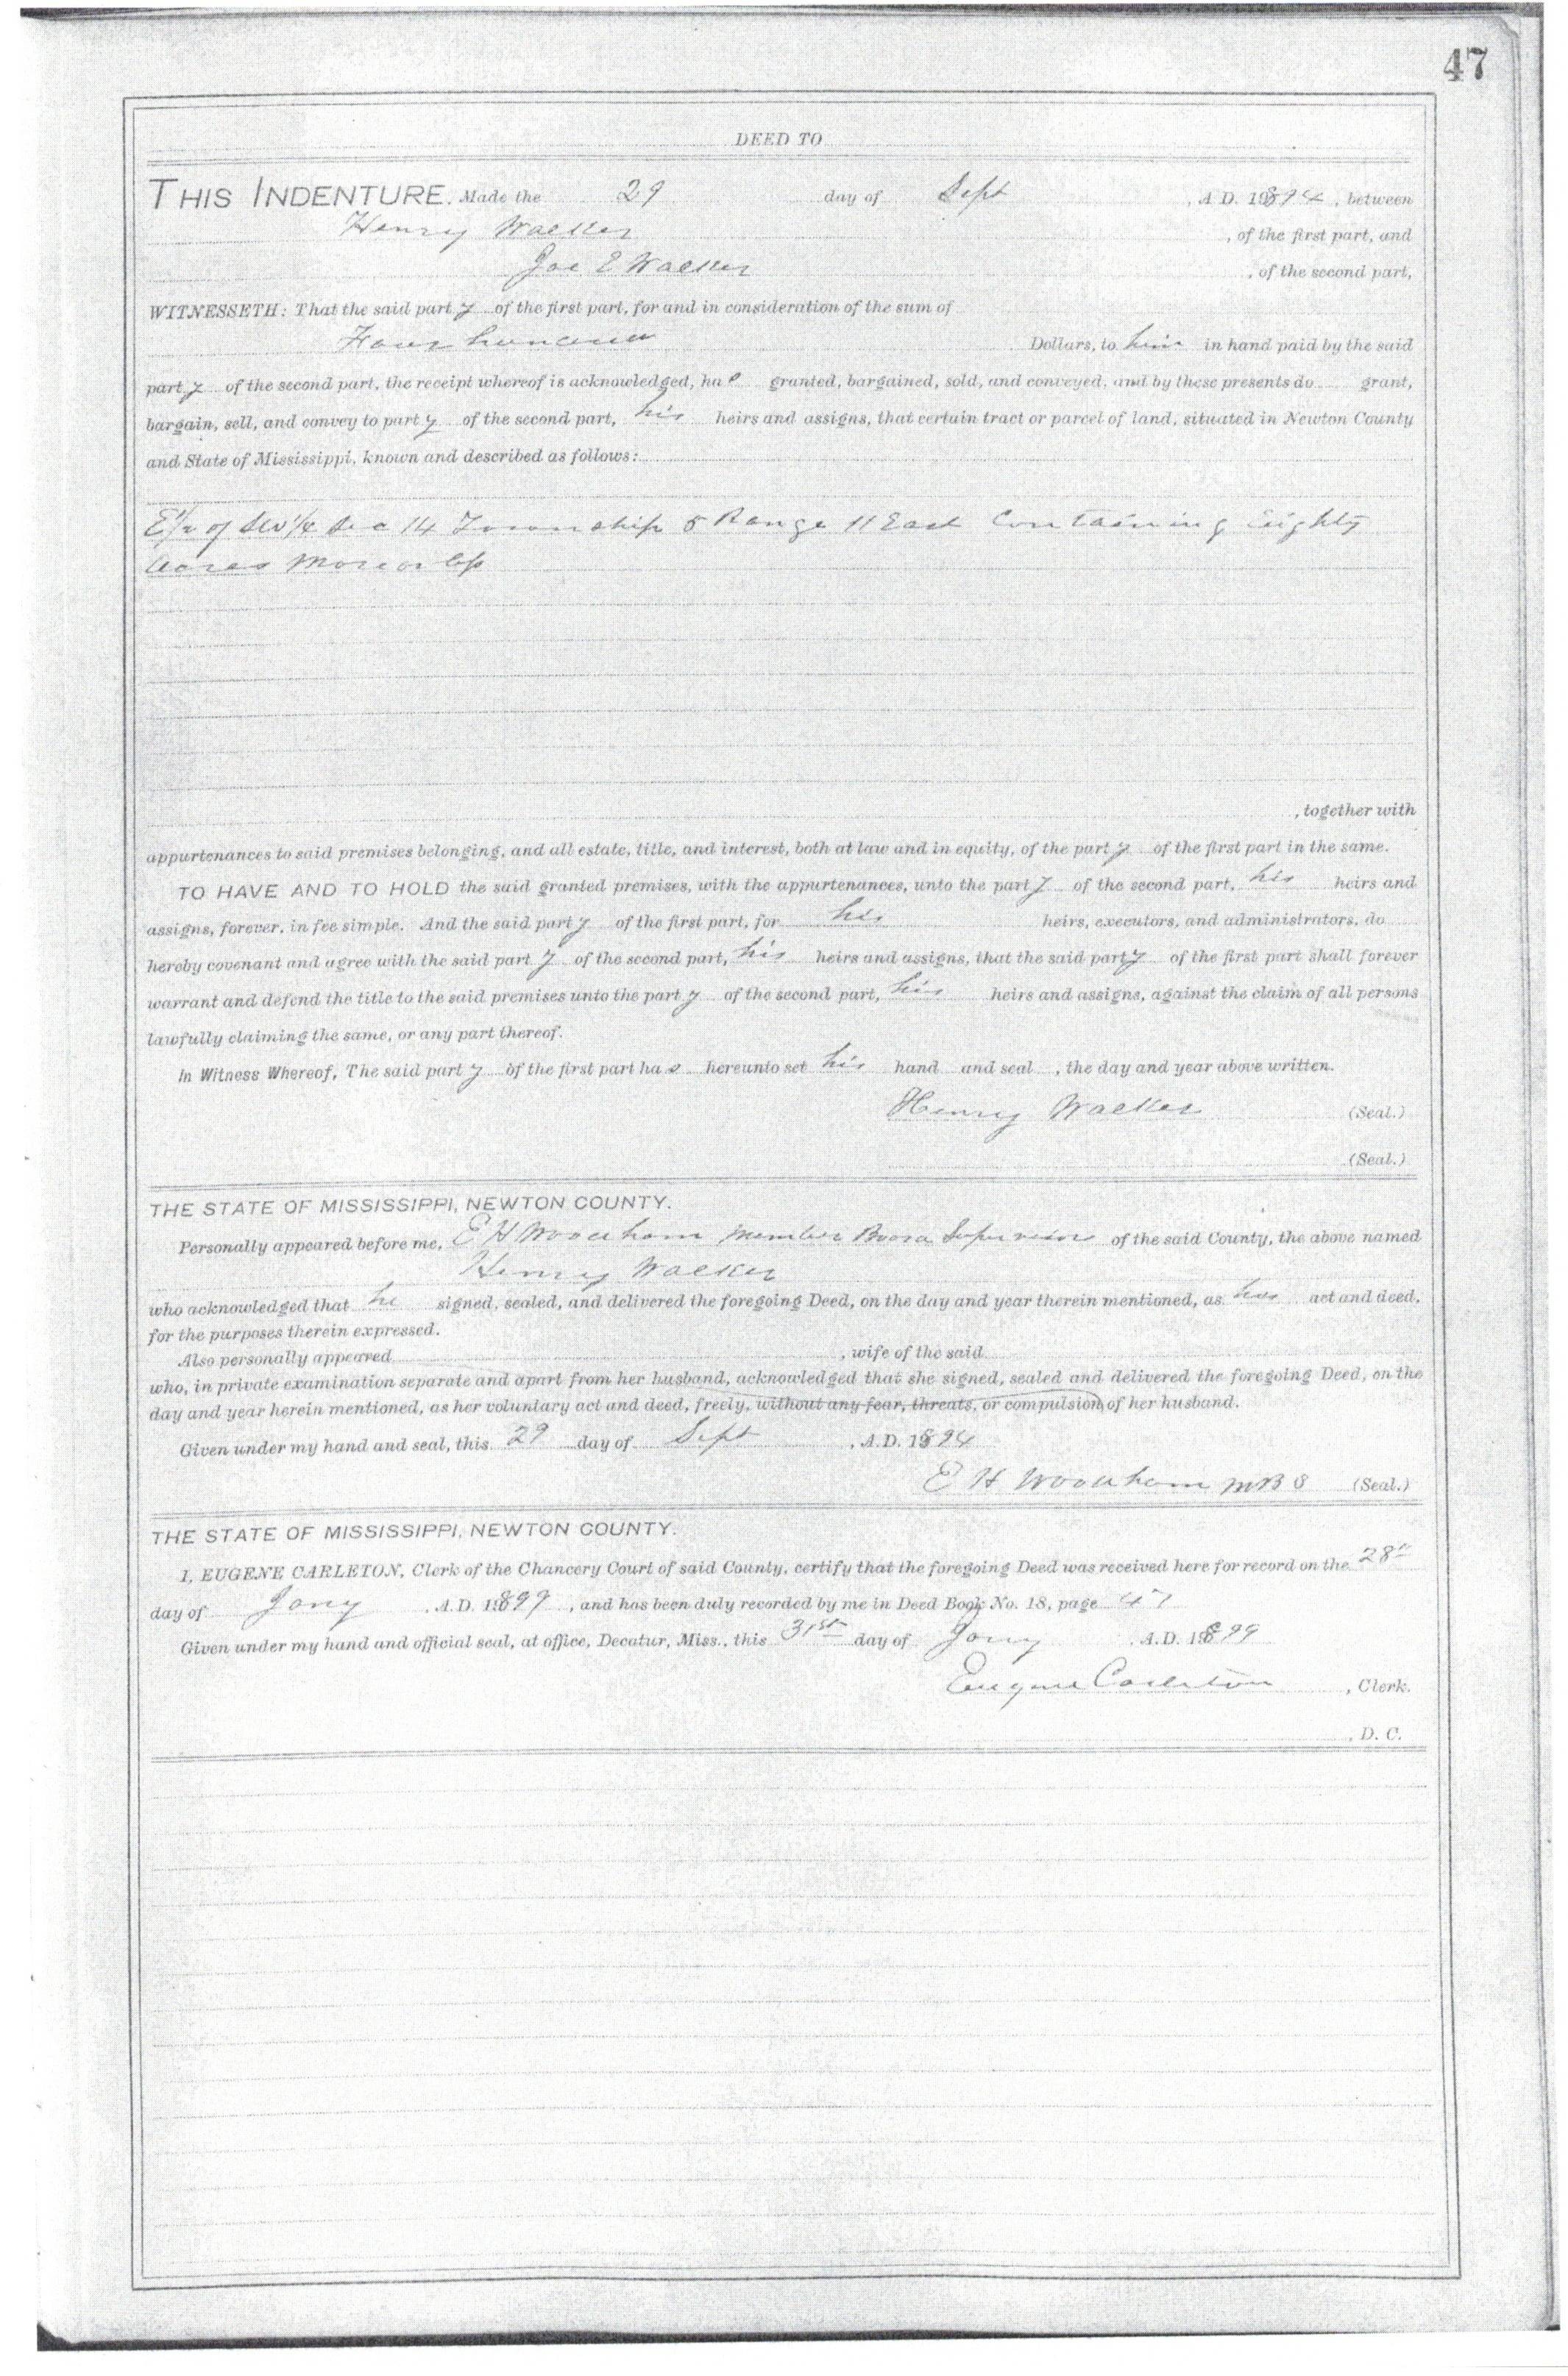 47
DEED TO
THIS INDENTURE, Made the 29 day of Sept , A. D. 1894 , between
Henry Walker , of the first part, and
Joe E Walker , of the second part,
WITNESSETH: That the said party of the first part, for and in consideration of the sum of
Four hundred Dollars, to him in hand paid by the said
party of the second part, the receipt whereof is acknowledged, ha granted, bargained, sold, and conveyed, and by these presents do grant,
bargain, sell, and convey to party of the second part, his heirs and assigns, that certain tract or parcel of land, situated in Newton County
and State of Mississippi, known and described as follows:
E 1/2 of SW 1/4 Sec 14 Township 5 Range 11 East Containing Eighty
acres More or less
, together with
appurtenances to said premises belonging, and all estate, title, and interest, both at law and in equity, of the party of the first part in the same.
TO HAVE AND TO HOLD the said granted premises, with the appurtenances, unto the party of the second part, his heirs and
assigns, forever, in fee simple. And the said party of the first part, for his heirs, executors, and administrators, do
hereby covenant and agree with the said party of the second part, his heirs and assigns, that the said party of the first part shall forever
warrant and defend the title to the said premises unto the party of the second part, his heirs and assigns, against the claim of all persons
lawfully claiming the same, or any part thereof.
In Witness Whereof, The said party of the first part has hereunto set his hand and seal , the day and year above written.
Henry Walker (Seal.)
(Seal.)
THE STATE OF MISSISSIPPI, NEWTON COUNTY.
Personally appeared before me, E H Woodham Member Board Supervisors of the said County, the above named
Henry Walker
who acknowledged that he signed, sealed, and delivered the foregoing Deed, on the day and year therein mentioned, as his act and deed,
for the purposes therein expressed.
Also personally appeared , wife of the said
who, in private examination separate and apart from her husband, acknowledged that she signed, sealed and delivered the foregoing Deed, on the
day and year herein mentioned, as her voluntary act and deed, freely, without any fear, threats, or compulsion, of her husband.
Given under my hand and seal, this 29 day of Sept , A.D. 1894
E H Woodham MBS (Seal.)
THE STATE OF MISSISSIPPI, NEWTON COUNTY.
I, EUGENE CARLETON, Clerk of the Chancery Court of said County, certify that the foregoing Deed was received here for record on the 28th
day of Jany , A.D. 1899 , and has been duly recorded by me in Deed Book No. 18, page 47
Given under my hand and official seal, at office, Decatur, Miss., this 31st day of Jany , A.D. 1899
Eugene Carleton , Clerk.
, D. C.